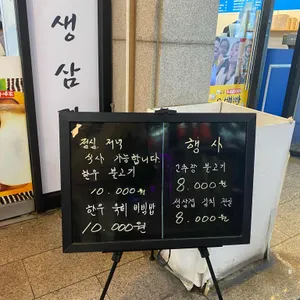 생삼겹
점심. 저녁
식사 가능합니다.
한우 불고기
10.000원
한우 육회 비빔밥
10.000원
행사
고추장 불고기
8.000원
생삼겹 김치 전골
8.000원